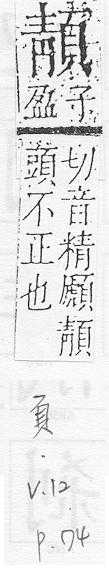 子
盈
切音精
頭不正也
頁
V.12
p.74